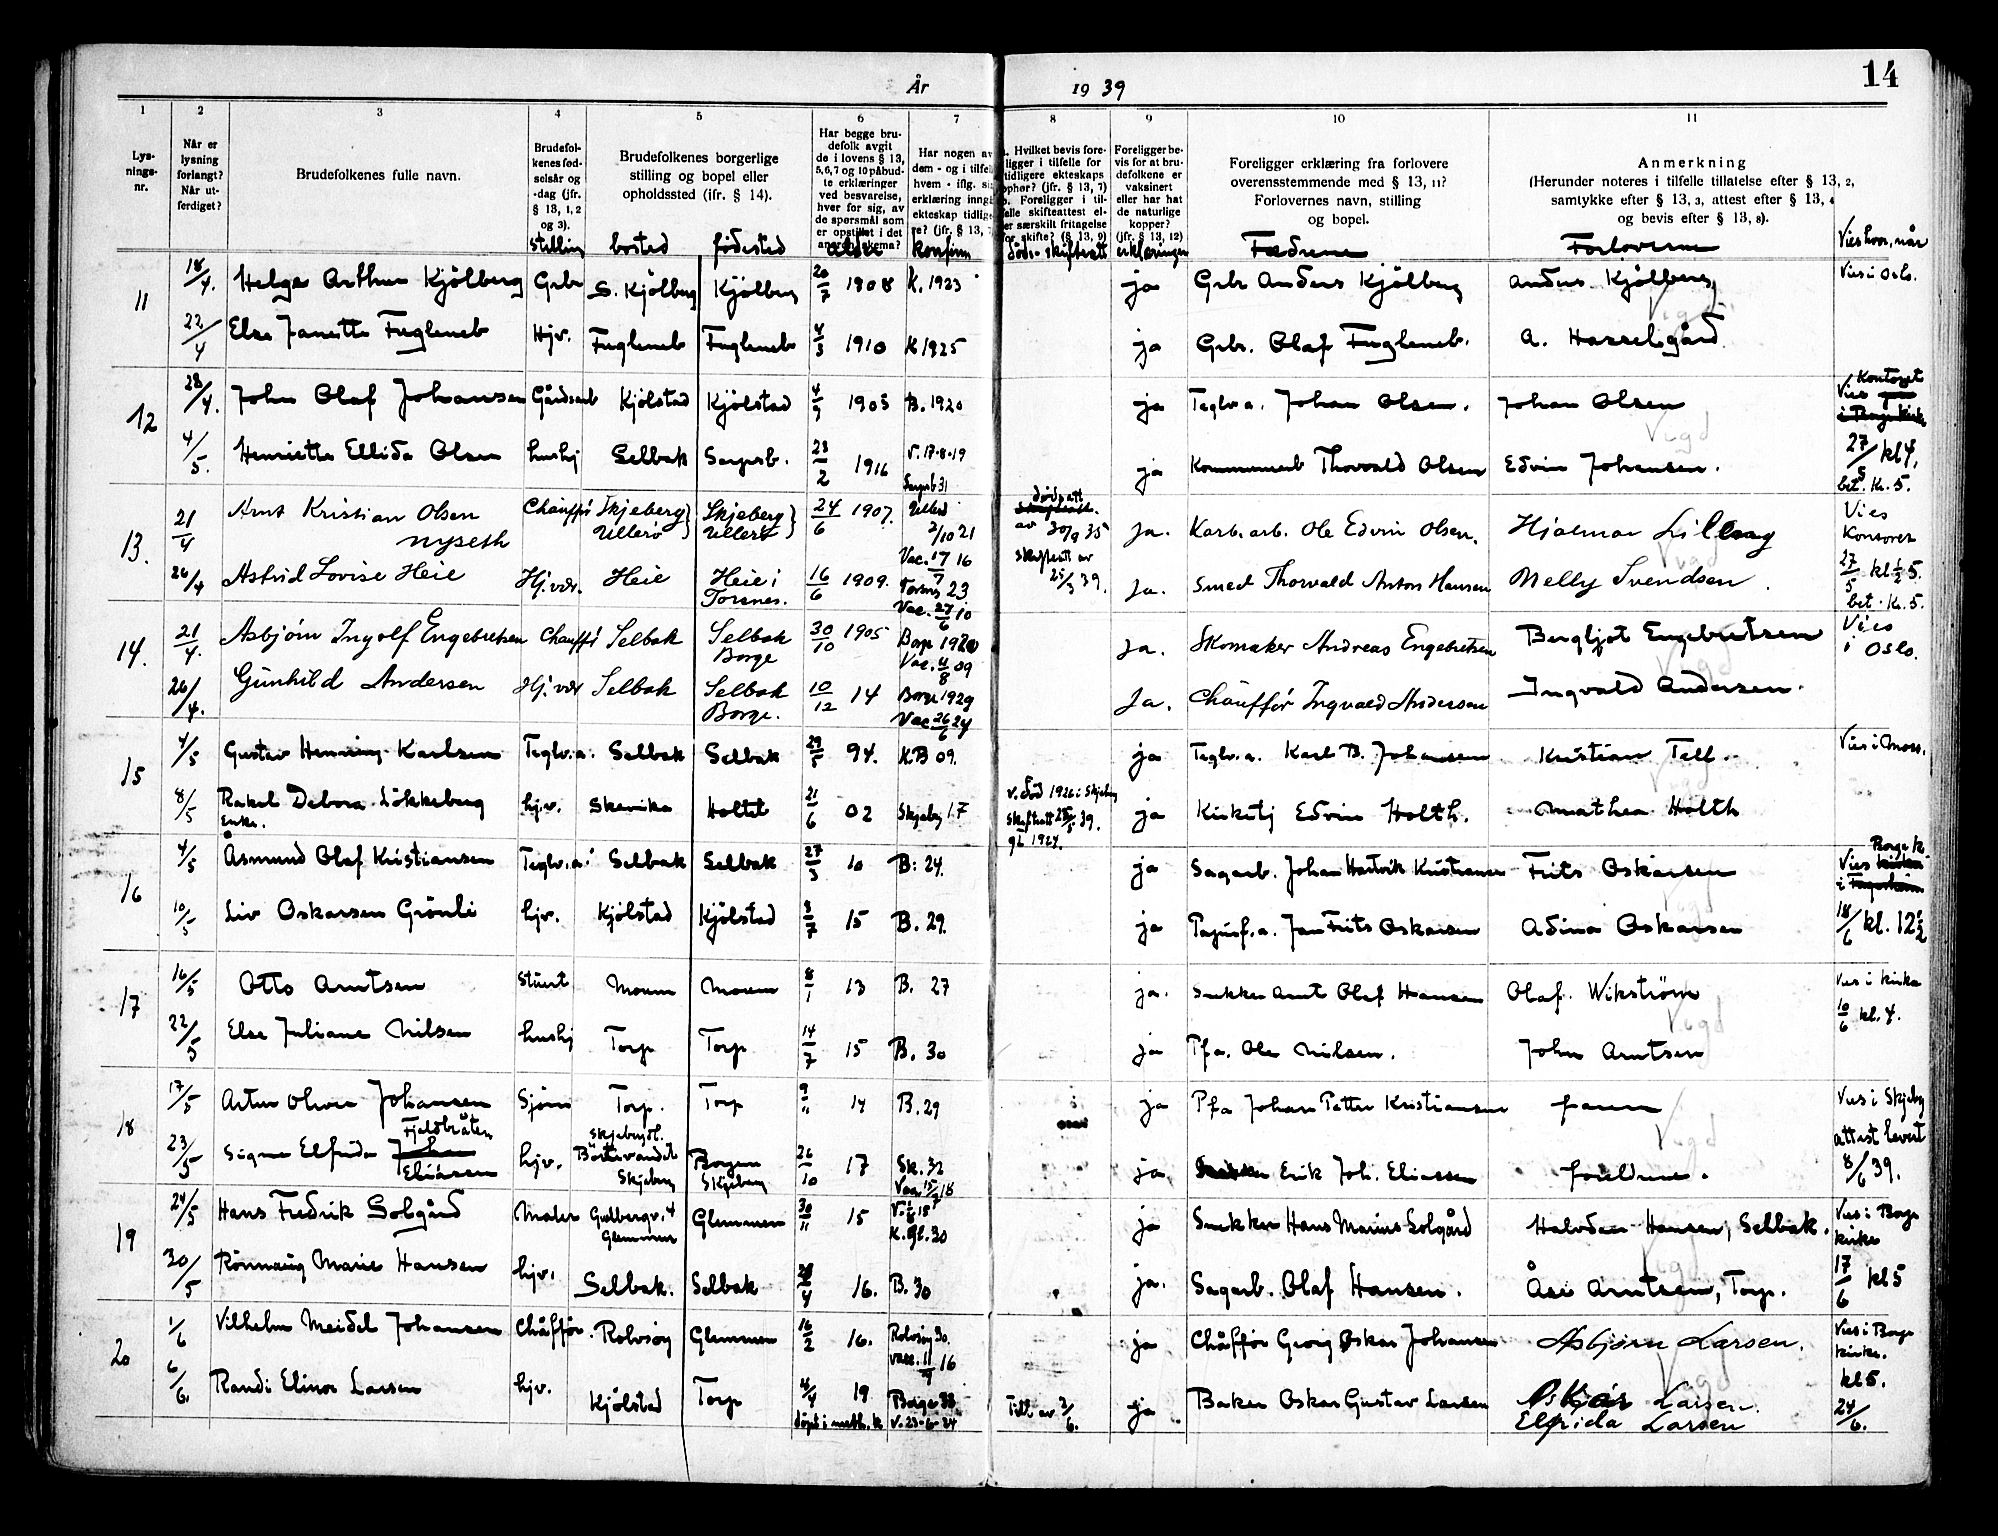 År 1939
14
1 2 3 4 5 6 7 8 9 10 11
Lys-
nings-
nr.
Når er
lysning
forlangt?
Når ut-
ferdiget?
Brudefolkenes fulle navn.
Brudefol-
kenes fød-
selsår og
-dag (jfr.
§ 13, 1, 2
og 3).
Brudefolkenes borgerlige
stilling og bopel eller
opholdssted (jfr. § 14).
Har begge bru-
defolk avgit
de i lovens § 13,
5, 6, 7 og 10 påbud-
te erklæringer
ved besvarelse,
hver for sig, av
de spørsmål som
er opstillet i det
Har nogen av
dem - og i tilfelle
hvem - iflg. si
erklæring inng
ekteskap tidlige
e? (jfr. § 13, 7
Hvilket bevis fore-
ligger i tilfelle for
tidligere ekteskaps
ophør? (jfr. § 13, 7)
Foreligger i til-
felle skifteattest el-
ler særskilt fritagelse
for skifte? (§ 13, 9)
Foreligger be-
vis for at bru-
defolkene er
vaksinert
eller har hat
de naturlige
kopper?
(jfr. § 13, 12)
Foreligger erklæring fra forlovere
overensstemmende med § 13, 11?
Forlovernes navn, stilling
og bopel.
Anmerkning
(Herunder noteres i tilfelle tillatelse efter § 13, 2,
samtykke efter § 13, 3, attest efter § 13, 4
og bevis efter § 13, 8).
stilling bosted fødested alder konfirm døds- skifteatt erklæringer Fædrene Forloverne Vies hvor, når
11 18/4. Helge Arthur Kjölberg Grbr S. Kjölberg Kjölberg 20/7 1908 K. 1923 ja Grbr Anders Kjölberg Anders Kjölberg Vies i Oslo.
22/4 Else Janette Fugleneb Hjv. Fugleneb Fugleneb 4/3 1910 K 1925 ja Grbr. Olaf Fugleneb. A. Hasselgård
Vigd
12 28/4. John Olaf Johansen Gårdsarb Kjölstad Kjölstad 4/9 1905 B. 1920 ja Teglv.a. Johan Olsen. Johan Olsen Vies Kontoret
4/5. Henriette Ellida Olsen hushj Selbak Sarpsb. 23/2 1916 V. 17-8-19 Sarpsb 31 ja Kommunearb Thorvald Olsen Edvin Johansen. 27/5 kl 4, bet. Kr. 5.
Vigd
13. 21/4 Arnt Kristian Olsen Nyseth Chauffør Skjeberg Ullerø Skjeberg Ullerø 24/6 1907. Ullerø 2/10 21 Vac. 17/7 16 dødsatt av 30/9 35 Ja. Karb. arb. Ole Edvin Olsen. Hjalmar Lilleng Vies Kontoret
26/4 Astrid Lovise Heie Hj.vær. Heie Heie i Torsnes. 16/6 1909. Torsnes 23 Vac. 27/6 10 skifteatt av 25/3 39. Ja. Smed Thorvald Anton Hansen Nelly Svendsen. 27/5 kl ½ 5. bet. Kr. 5.
Vigd
14. 21/4. Asbjørn Ingolf Engebretsen Chauffør Selbak Selbak Borge 30/10 1905 Borge 1920 Vac. 4/8 09 Ja. Skomaker Andreas Engebretsen Bergljot Engebretsen Vies i Oslo.
26/4. Gunhild Andersen Hj.vær Selbak Selbak Borge. 10/12 14 Borge 1929 Vac 26/6 24 Ja. Chauffør Ingvald Andersen Ingvald Andersen.
Vigd
15 4/5 Gustav Henning Karlsen Teglv.a. Selbak Selbak 29/5 94. KB 09. ja Teglv.a. Karl B. Johansen Kristian Tell. Vies i Moss.
8/5 Rakel Debora Lökkeberg Enke. hjv. Skevika Holtet 21/6 02 Skjeberg 17 V. död 1926 i Skjeberg ja Kirketj Edvin Holth. Mathea Holth
16 4/5 Åsmund Olaf Kristiansen Teglv.a. Selbak Selbak 27/3 10 B: 24. ja Sagarb. Johan Hartvik Kristiansen Frits Oskarsen Vies Borge k.
10/5 Liv Oskarsen Grönli hjv. Kjölstad Kjölstad 8/7 15 B. 29. ja Papirf.a. Jan Frits Oskarsen Adina Oskarsen 18/6 kl. 12½
Vigd
17 16/5 Otto Arntsen Stuert Moum Moum 8/1 13 B. 27 ja. Snekker Arnt Olaf Hansen Olaf. Wikström Vies i kirka
22/5 Else Juliane Nilsen hushj Torp Torp 14/7 15 B. 30 ja Pfa. Ole Nilsen. John Arntsen 10/6 kl. 4.
Vigd
18 17/5 Artur Oliver Johansen Fjeldbråten Sjøm Torp. Torp 9/11 14 B. 29 ja Pfa Johan Petter Kristiansen faren Vies i Skjeberg
23/5 Signe Elfrida Eliasen hjv. Skjebergdl. Börtevandet Skjeberg Borgen Skjeberg 26/10 17 Sk. 32 Vac 15/7 18 ja Erik Joh. Eliassen foreldrene. attest levert 8/6 39.
Vigd
19 24/5 Hans Fredrik Solgård Maler Gulbergv. 4 Glemmen Glemmen 30/11 15 K. Gl. 30 ja Snekker Hans Marius Solgård Halvdan Hansen, Selbak. Vies i Borge kirke
30/5 Rönnaug Marie Hansen hjv. Selbak. Selbak 16. B. 30 ja. Sagarb. Olaf Hansen. Åse Arntsen, Torp. 17/6 kl 5
Vigd
20 1/6 Vilhelm Meidel Johansen Chåffør. Rolvsøy Glemmen 16/2 16. Rolvsøy 30. vacc. 11/9 16 ja Chåffør Georg Oskar Johansen Asbjørn Larsen. Vies i Borge kirke.
6/6. Randi Elinor Larsen hjv. Kjölstad Torp 4/4 19 döpt i meth.k Borge 33 V. 23-6-24 Till. av 2/6. ja Baker Oskar Gustav Larsen Oskar Larsen. Elfrida Larsen kl 5. 24/6.
Vigd